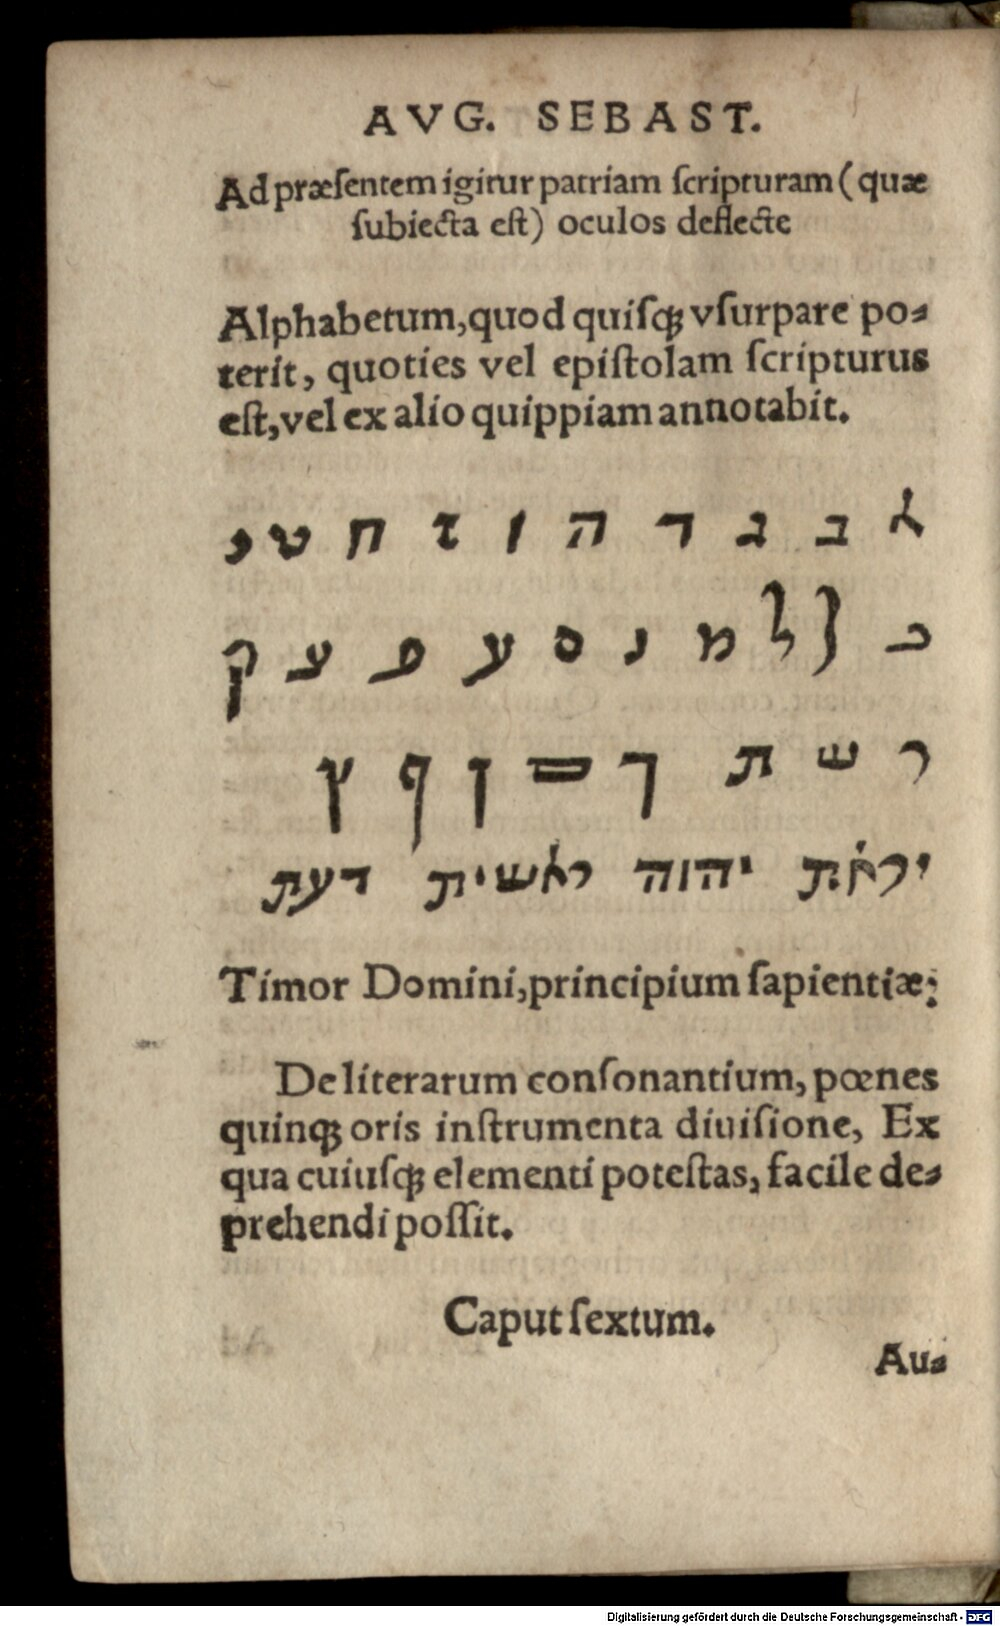 AVG. SEBAST.
Ad præſentem igitur patriam ſcripturam (quæ
ſubiecta eſt) oculos deflecte
Alphabetum, quod quiſqꝫ vſurpare po⸗
terit, quoties vel epiſtolam ſcripturus
eſt, vel ex alio quippiam annotabit.
א ב ג ד ה ו ז ח ט י
כ ן ל מ נ ס ע פ צ ק
ר ש ת ך ם ן ף ץ
יראת יהוה ראשית דעת
Timor Domini, principium ſapientiæ;
De literarum conſonantium, pœnes
quinqꝫ oris inſtrumenta diuiſione, Ex
qua cuiuſqꝫ elementi poteſtas, facile de⸗
prehendi poſſit.
Caput ſextum.
Au⸗
Digitalisierung gefördert durch die Deutsche Forschungsgemeinschaft - DFG